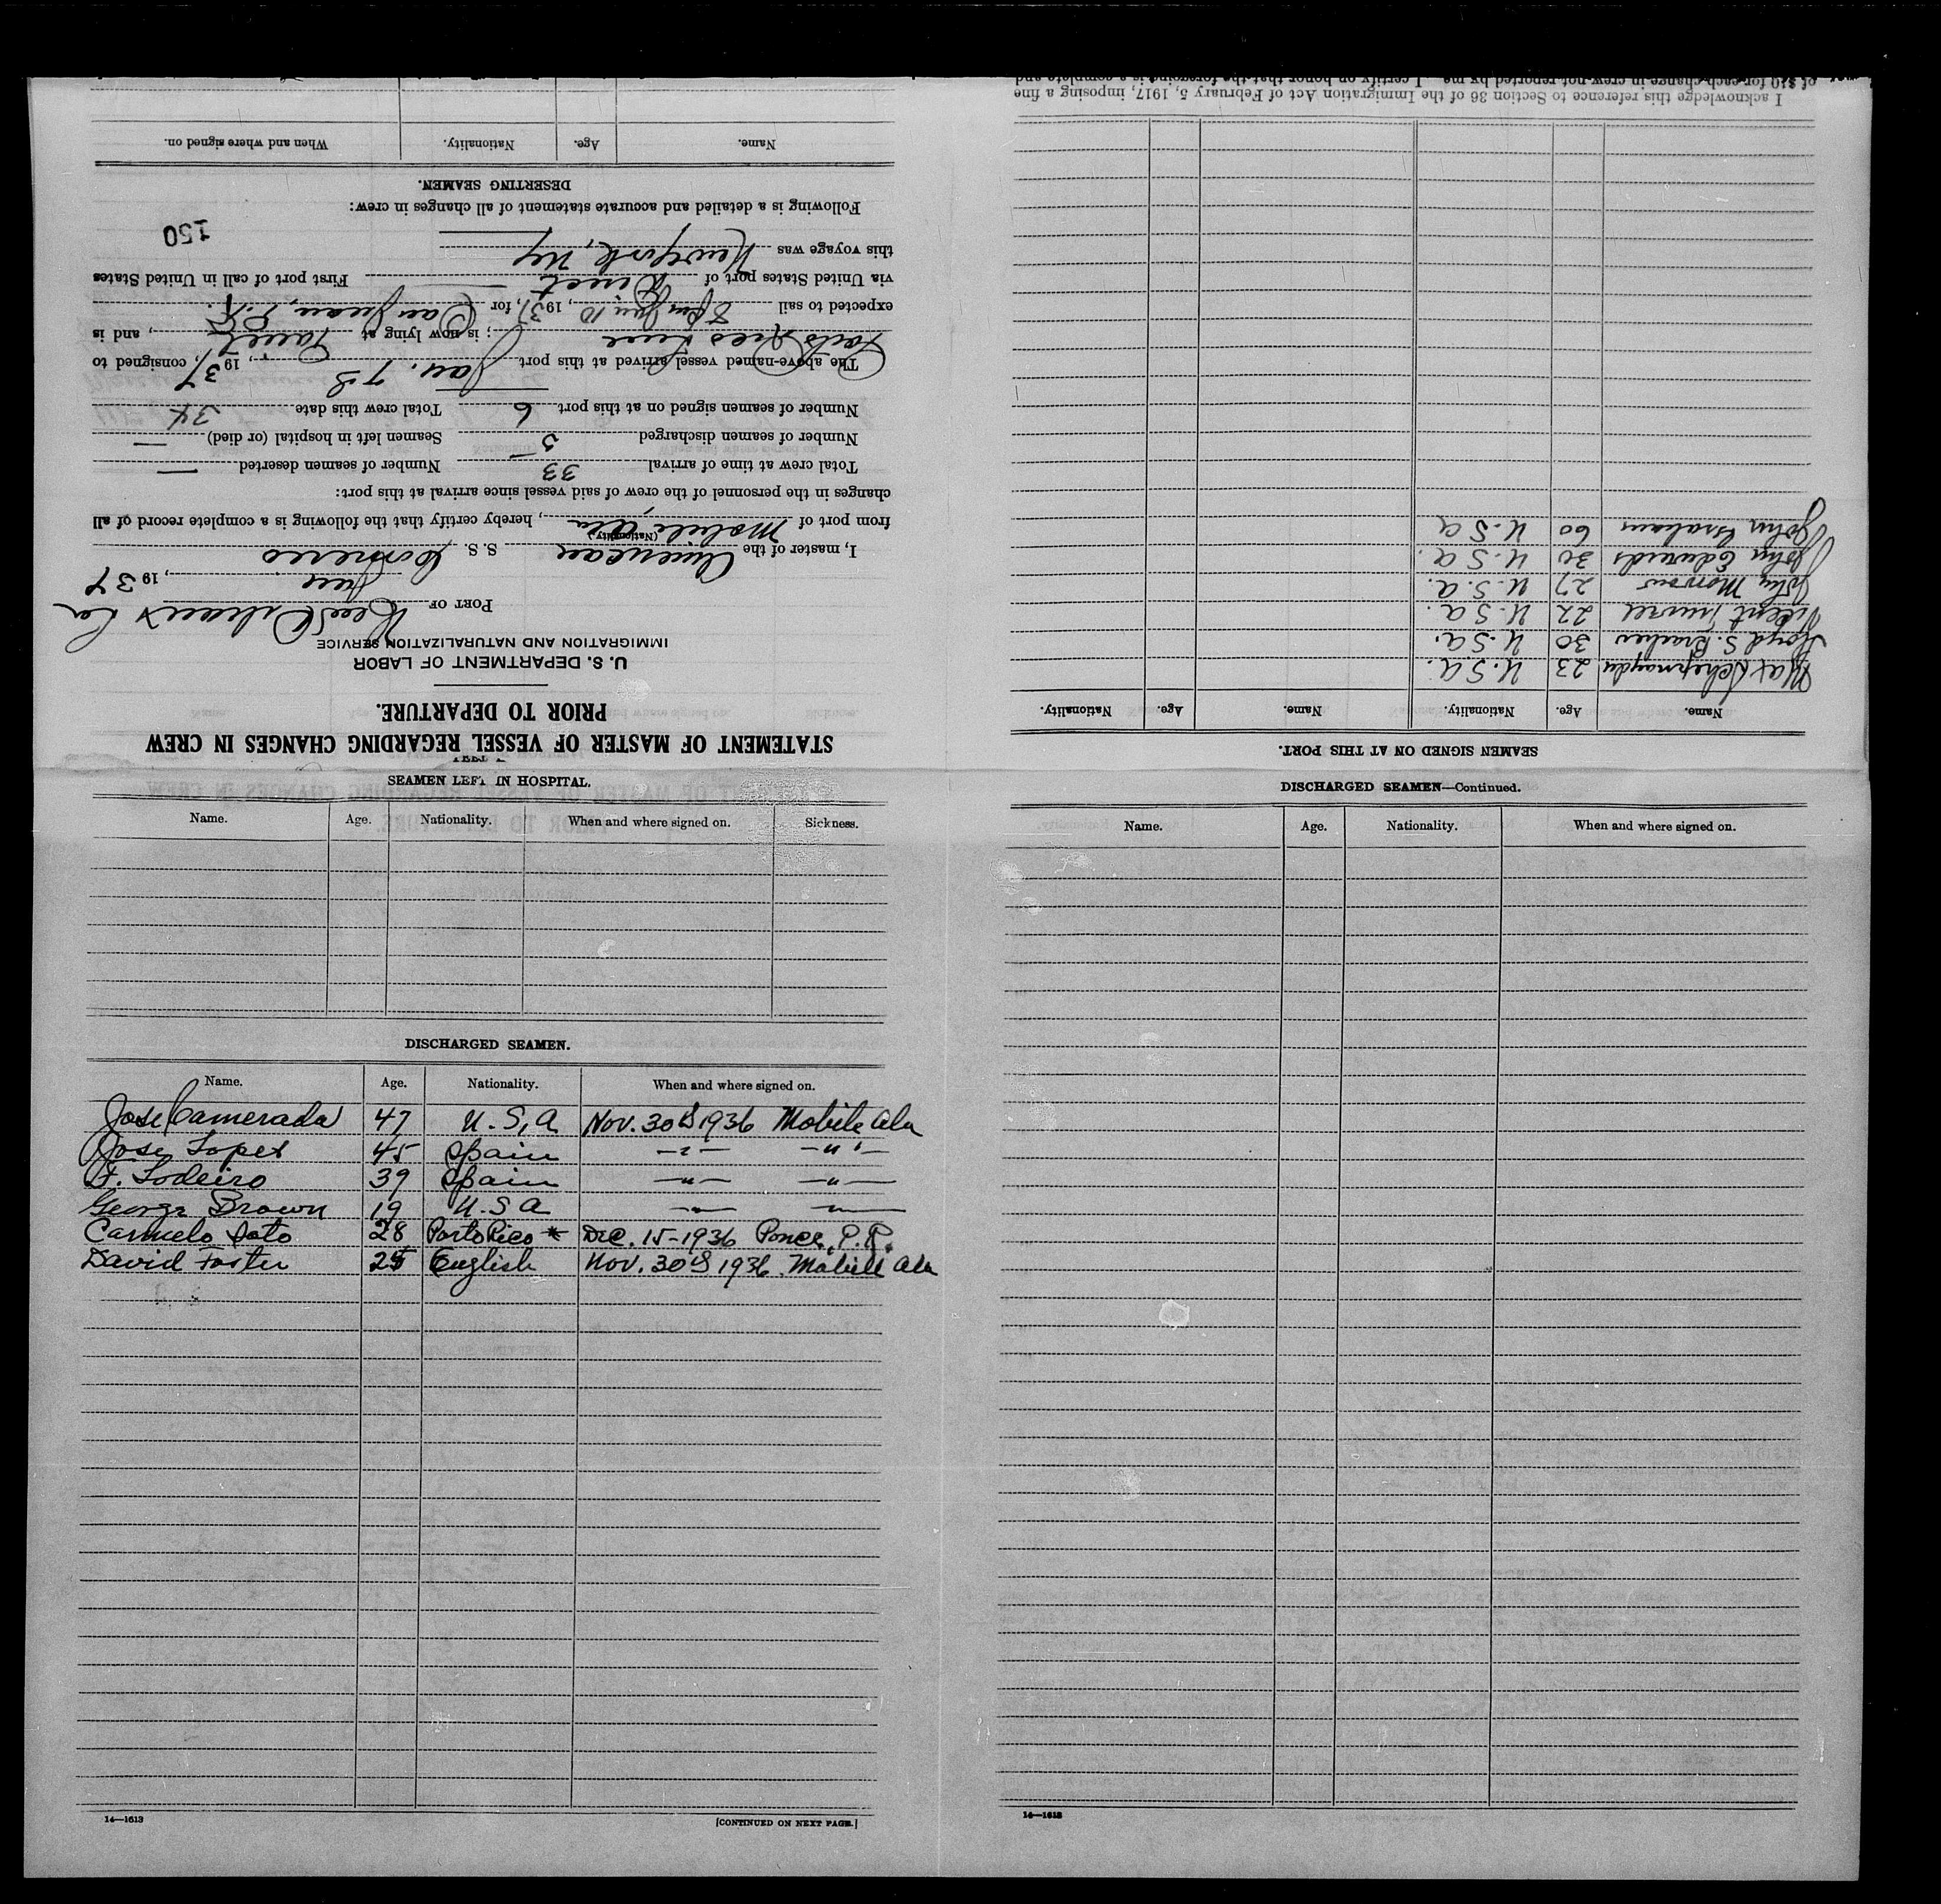 STATEMENT OF MASTER OF VESSEL REGARDING CHANGES IN CREW
PRIOR TO DEPARTURE.
U. S. DEPARTMENT OF LABOR
IMMIGRATION AND NATURALIZATION SERVICE
PORT OF New Orleans La
, 19 37
I, master of the American S. S. 
(Nationality)
from port of Mobile, Ala , hereby certify that the following is a complete record of all
changes in the personnel of the crew of said vessel since arrival at this port:
Total crew at time of arrival 33 Number of seamen deserted —
Number of seamen discharged 5 Seamen left in hospital (or died) —
Number of seamen signed on at this port 6 Total crew this date 34
The above-named vessel arrived at this port Jan. 7th , 19 37, consigned to
Porto Rico Line ; is now lying at , and is
expected to sail 8 pm Jan 10 , 19 37, for San Juan, P.R.
via United States port of Direct First port of call in United States
this voyage was New York, NY
150
Following is a detailed and accurate statement of all changes in crew:
DESERTING SEAMEN.
Name. Age. Nationality. When and where signed on.
SEAMEN LEFT IN HOSPITAL.
Name. Age. Nationality. When and where signed on. Sickness.
DISCHARGED SEAMEN.
Name. Age. Nationality. When and where signed on.
Jose Camerada 47 U.S.A Nov. 30th 1936 Mobile Ala
Jose Lopez 45 Spain —"— —"—
F. Lodeiro 39 Spain —"— —"—
George Brown 19 U.S A —"— —"—
Carmelo Soto 28 Porto Rico * Dec. 15-1936 Ponce, P.R.
David Foster 25 English Nov. 30th 1936 Mobile Ala
14—1613 [CONTINUED ON NEXT PAGE.]
DISCHARGED SEAMEN—Continued.
Name. Age. Nationality. When and where signed on.
14—1613
SEAMEN SIGNED ON AT THIS PORT.
Name. Age. Nationality. Name. Age. Nationality.
Max 23 U.S.A.
Lloyd S. 30 U.S.A.
22 U.S.A.
John Morrow 27 U.S.A.
John Edwards 30 U.S.A.
John Graham 60 U.S.A
I acknowledge this reference to Section 36 of the Immigration Act of February 5, 1917, imposing a fine
of $10 for each change in crew not reported by me. I certify on honor that the foregoing is a complete and